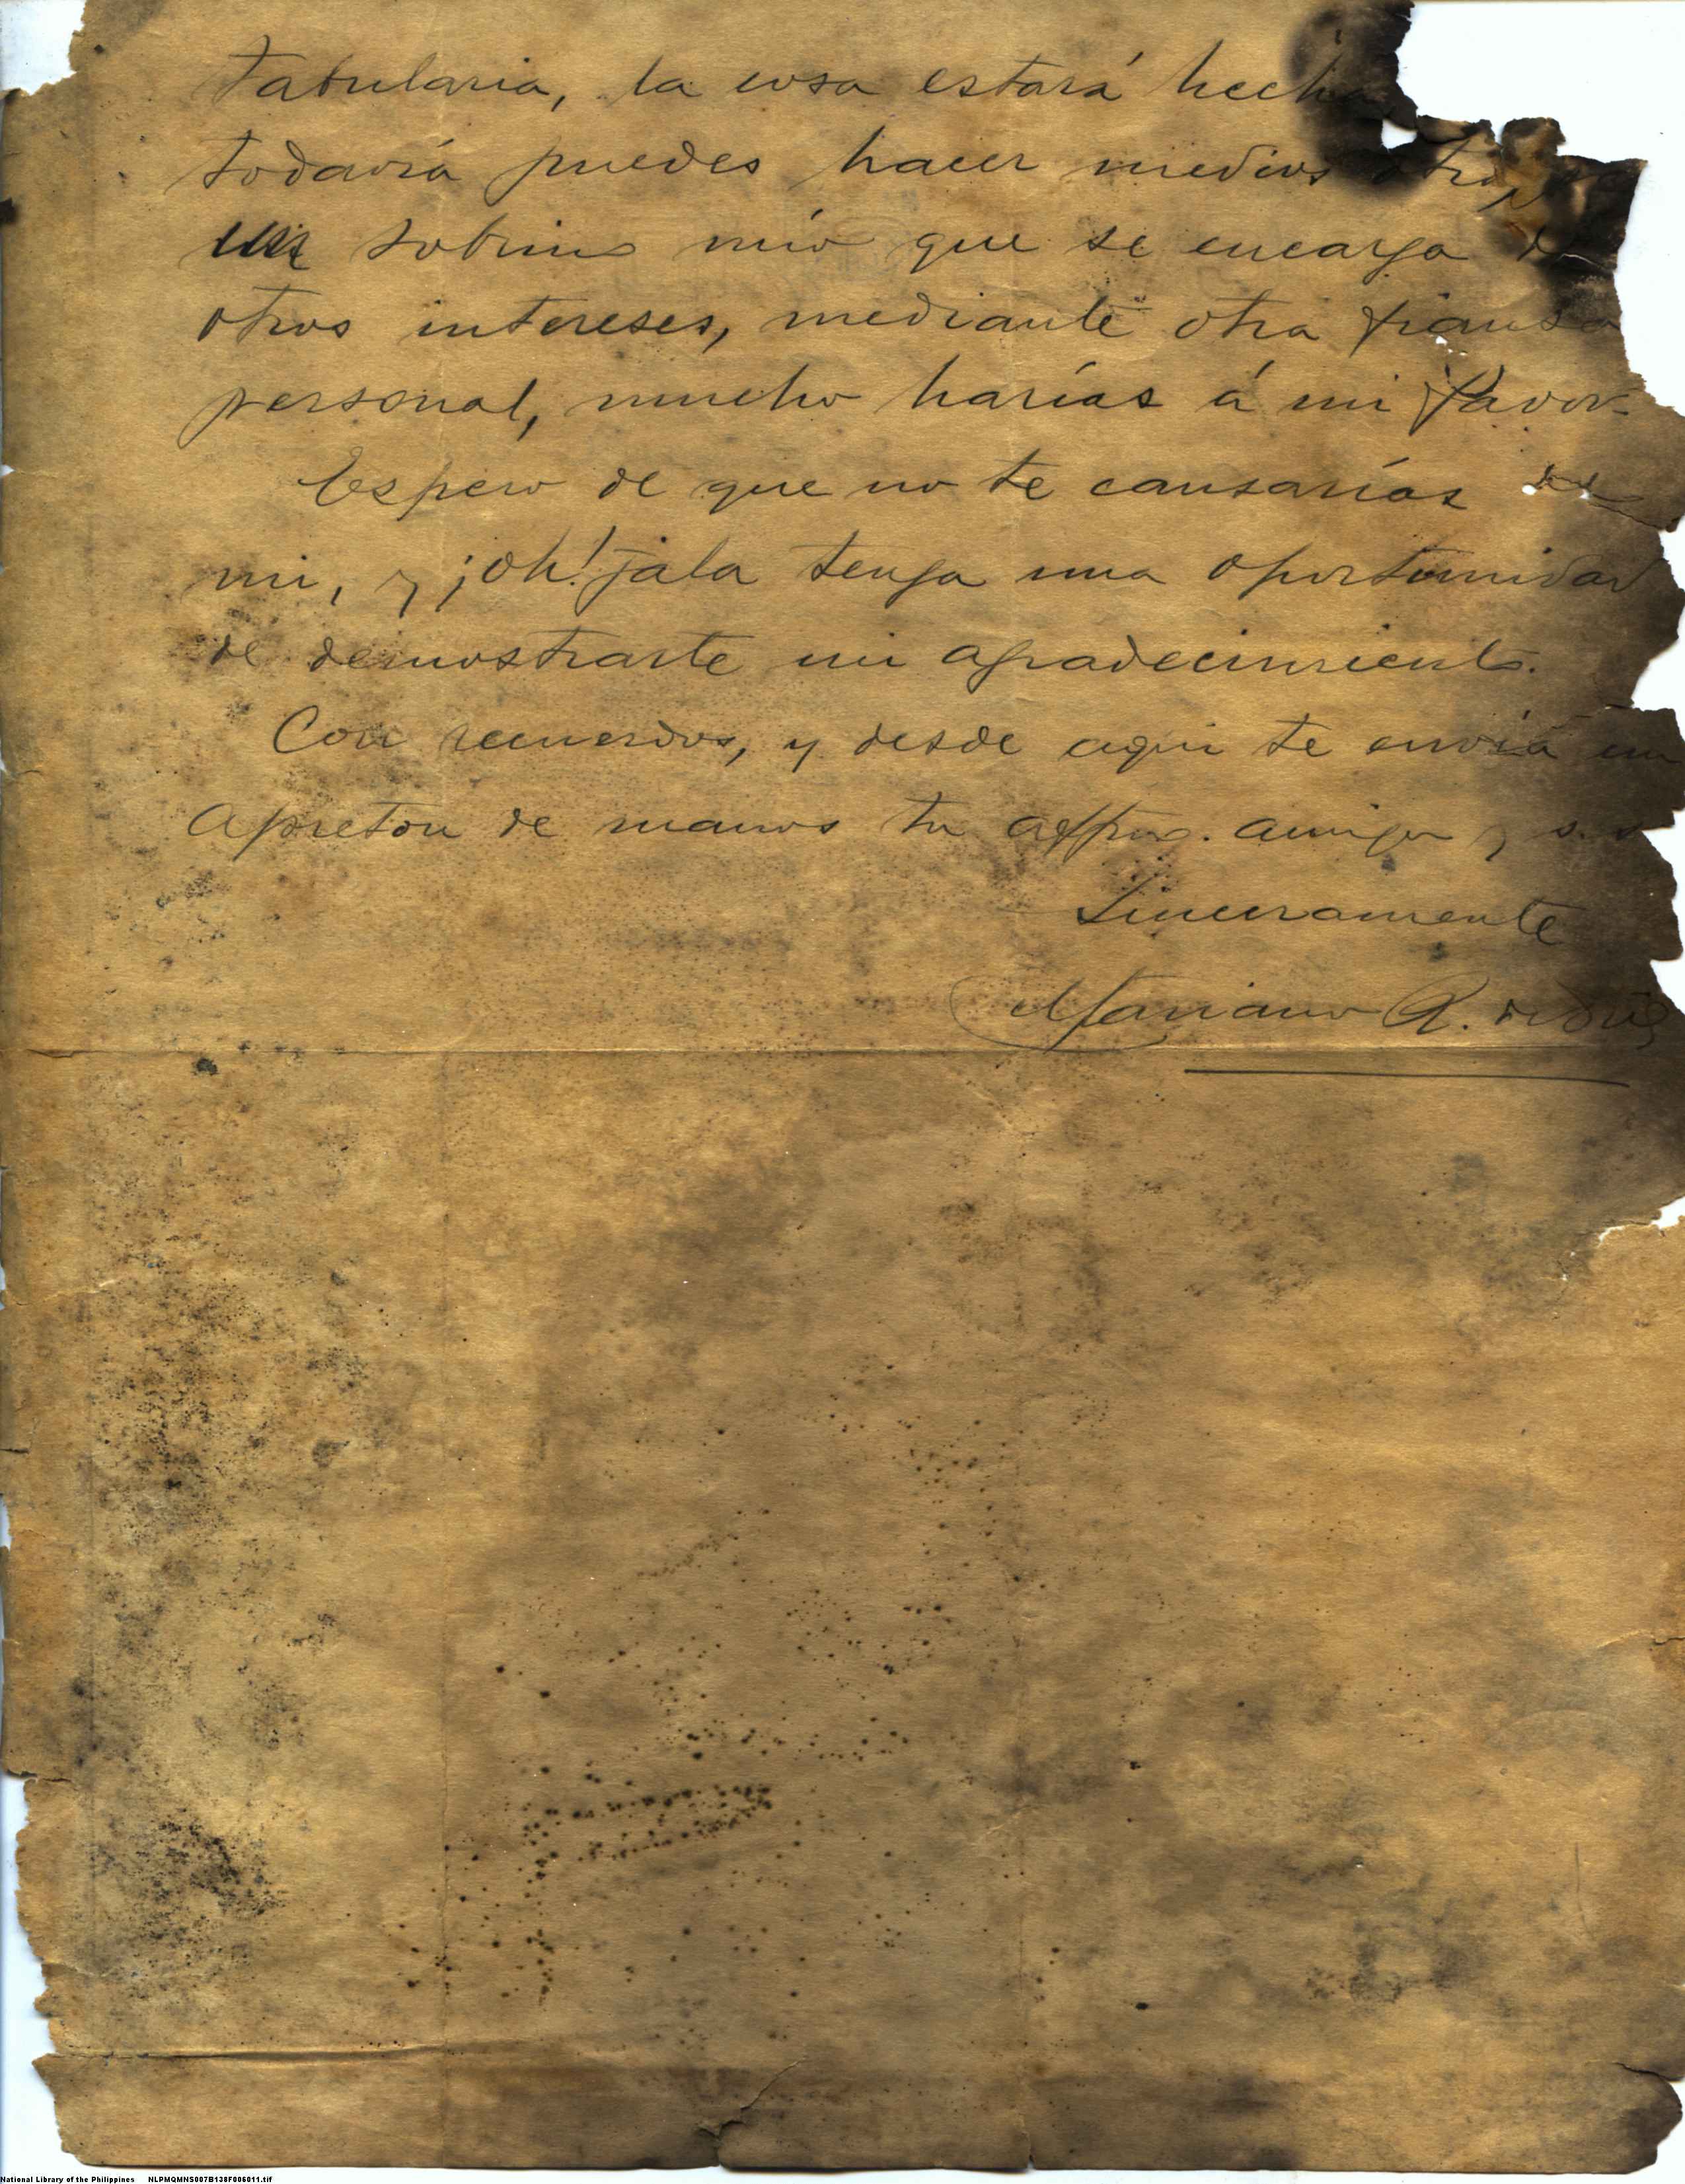 tabularia, la cosa estará hecha
todavía puedes hacer medios otro,
sobrino mío que se encarga de
otros intereses, mediante otra fianza
personal, mucho harías á mi favor.
Espero de que no te cansarías de
mi, y ¡oh! jala tenga una oportunidad
de demostrarte mi agradecimiento.
Con recuerdos, y desde aqui te envía un
apreton de manos tu affmo. amigo y s. s.
Sinceramente
Mariano R.
National Library of the Philippines NLPMQMNS007B138F006011.tif